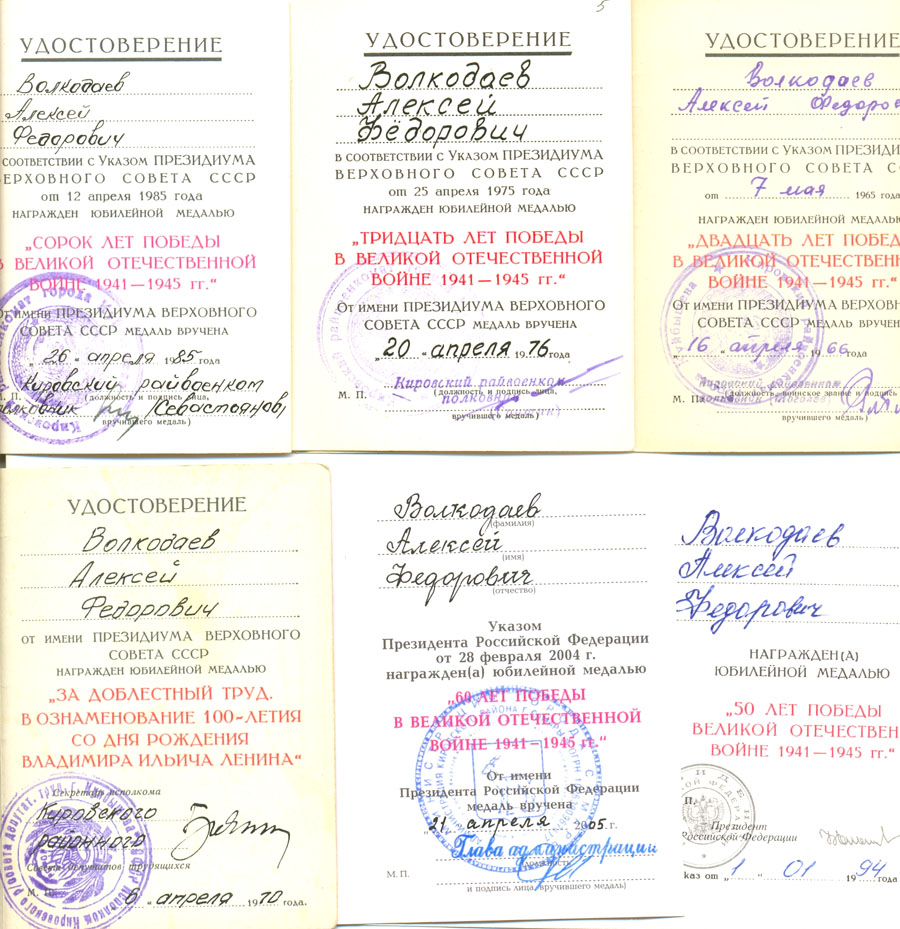 5
УДОСТОВЕРЕНИЕ
Волкодаев
Алексей
Федорович
В СООТВЕТСТВИИ С УКАЗОМ ПРЕЗИДИУМА
ВЕРХОВНОГО СОВЕТА СССР
от 12 апреля 1985 года
НАГРАЖДЕН ЮБИЛЕЙНОЙ МЕДАЛЬЮ
„СОРОК ЛЕТ ПОБЕДЫ
В ВЕЛИКОЙ ОТЕЧЕСТВЕННОЙ
ВОЙНЕ 1941—1945 гг.“
От имени ПРЕЗИДИУМА ВЕРХОВНОГО
СОВЕТА СССР МЕДАЛЬ ВРУЧЕНА
„26“ апреля 1985 года
Кировский райвоенком
(должность и подпись лица,
М. П. полковник Севастоянов,
вручившего медаль)
УДОСТОВЕРЕНИЕ
Волкодаев
Алексей
Фёдорович
В СООТВЕТСТВИИ С УКАЗОМ ПРЕЗИДИУМА
ВЕРХОВНОГО СОВЕТА СССР
от 25 апреля 1975 года
НАГРАЖДЕН ЮБИЛЕЙНОЙ МЕДАЛЬЮ
„ТРИДЦАТЬ ЛЕТ ПОБЕДЫ
В ВЕЛИКОЙ ОТЕЧЕСТВЕННОЙ
ВОЙНЕ 1941—1945 гг.“
От имени ПРЕЗИДИУМА ВЕРХОВНОГО
СОВЕТА СССР МЕДАЛЬ ВРУЧЕНА
„20“ апреля 1976 года
Кировский райвоенком
(должность и подпись лица,
М. П. полковник
вручившего медаль)
УДОСТОВЕРЕНИЕ
Волкодаев
Алексей Федоро
В СООТВЕТСТВИИ С УКАЗОМ ПРЕЗИДИ
ВЕРХОВНОГО СОВЕТА С
от 7 мая 1965 года
НАГРАЖДЕН ЮБИЛЕЙНОЙ МЕДАЛЬ
„ДВАДЦАТЬ ЛЕТ ПОБЕД
В ВЕЛИКОЙ ОТЕЧЕСТВЕНН
ВОЙНЕ 1941—1945 гг.“
От имени ПРЕЗИДИУМА ВЕРХОВН
СОВЕТА СССР МЕДАЛЬ ВРУЧЕН
„16“ апреля 1966 года
Кировский райвоенком
(должность, воинское звание и подпись
М. П. полковник
вручившего медаль)
УДОСТОВЕРЕНИЕ
Волкодаев
Алексей
Федорович
ОТ ИМЕНИ ПРЕЗИДИУМА ВЕРХОВНОГО
СОВЕТА СССР
НАГРАЖДЕН ЮБИЛЕЙНОЙ МЕДАЛЬЮ
„ЗА ДОБЛЕСТНЫЙ ТРУД.
В ОЗНАМЕНОВАНИЕ 100-ЛЕТИЯ
СО ДНЯ РОЖДЕНИЯ
ВЛАДИМИРА ИЛЬИЧА ЛЕНИНА“
Секретарь исполкома
Кировского
районного
Совета депутатов трудящихся
М. П. 6 „ апреля 1970 года.
Волкодаев
(фамилия)
Алексей
(имя)
Федорович
(отчество)
Указом
Президента Российской Федерации
от 28 февраля 2004 г.
награжден(а) юбилейной медалью
„60 ЛЕТ ПОБЕДЫ
В ВЕЛИКОЙ ОТЕЧЕСТВЕННОЙ
ВОЙНЕ 1941—1945 гг.“
От имени
Президента Российской Федерации
медаль вручена
21 апреля 2005 г.
Глава администрации
(должность
М. П.
и подпись лица, вручившего медаль)
Волкодаев
Алексей
Федорович
НАГРАЖДЕН(А)
ЮБИЛЕЙНОЙ МЕДАЛЬЮ
„50 ЛЕТ ПОБЕДЫ
ВЕЛИКОЙ ОТЕЧЕСТВЕННОЙ
ВОЙНЕ 1941—1945 гг.“
П.
Президент
Российской Федерации
каз от „1“ 01 1994 года